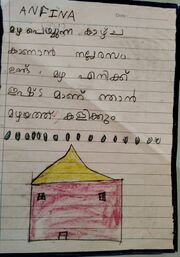 ANFINA
Date:
മഴ പെയ്യുന്ന കാഴ്ച
കാണാൻ നല്ലരസം
ഉണ്ട്. മഴ എനിക്ക്
ഇഷ്ട മാണ് ഞാൻ
മഴയത്ത് കളിക്കും